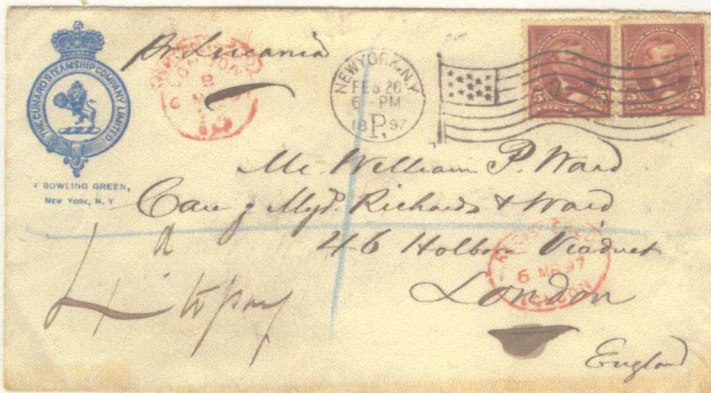 THE CUNARD STEAMSHIP COMPANY LIMITED
4 BOWLING GREEN,
NEW YORK, N.Y
Pr Lucania
LONDON
NEW YORK, N.Y.
FEB 26
6-PM
1897
P.
5 5 5 5
Mr. William P. Ward
Care of Mess. Richards & Ward
46 Holborn Viaduct
London
England
6 MR 97
LONDON
4d to pay